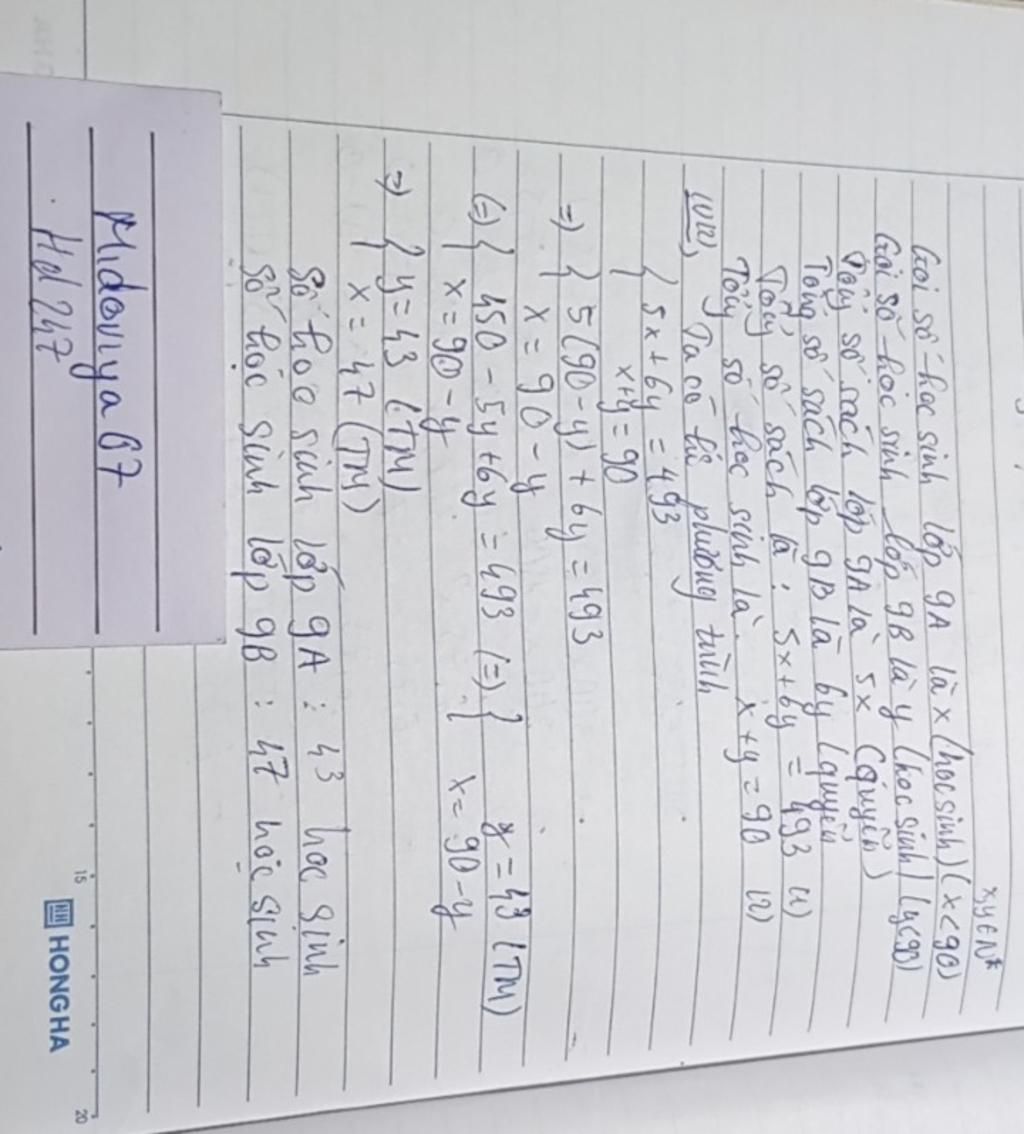 x,y ∈ N*
Gọi số học sinh lớp 9A là x (học sinh) (x<90)
Gọi số học sinh lớp 9B là y (học sinh) (y<90)
Tổng số sách lớp 9A là 5x (quyển)
Tổng số sách lớp 9B là 6y (quyển
Tổng số sách là : 5x+6y = 493 (1)
Tổng số học sinh là x+y = 90 (2)
(1)(2), Ta có hệ phương trình
{ 5x + 6y = 493
x+y = 90
=> { 5(90-y) + 6y = 493
x = 90 - y
(=) { 450 - 5y + 6y = 493 (=) { y = 43 (TM)
x = 90 - y x = 90 - y
=> { y = 43 (TM)
x = 47 (TM)
Số học sinh lớp 9A : 43 học sinh
Số học sinh lớp 9B : 47 học sinh
Midoriya67
Hd247
15
20
HONGHA